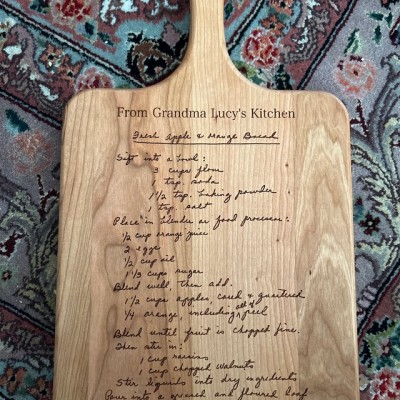 From Grandma Lucy's Kitchen
Fresh Apple & Orange Bread
Sift into a bowl:
3 cups flour
1 tsp. soda
1 1/2 tsp. baking powder
1 tsp. salt
Place in blender or food processor:
1/2 cup orange juice
2 eggs
1/2 cup oil
1 1/3 cups sugar
Blend well, then add.
1 1/2 cups apples, cored & quartered
1/4 orange, including all of peel
Blend until fruit is chopped fine.
Then stir in:
1 cup raisins
1 cup chopped walnuts
Stir liquids into dry ingredients
Pour into a greased and floured loaf